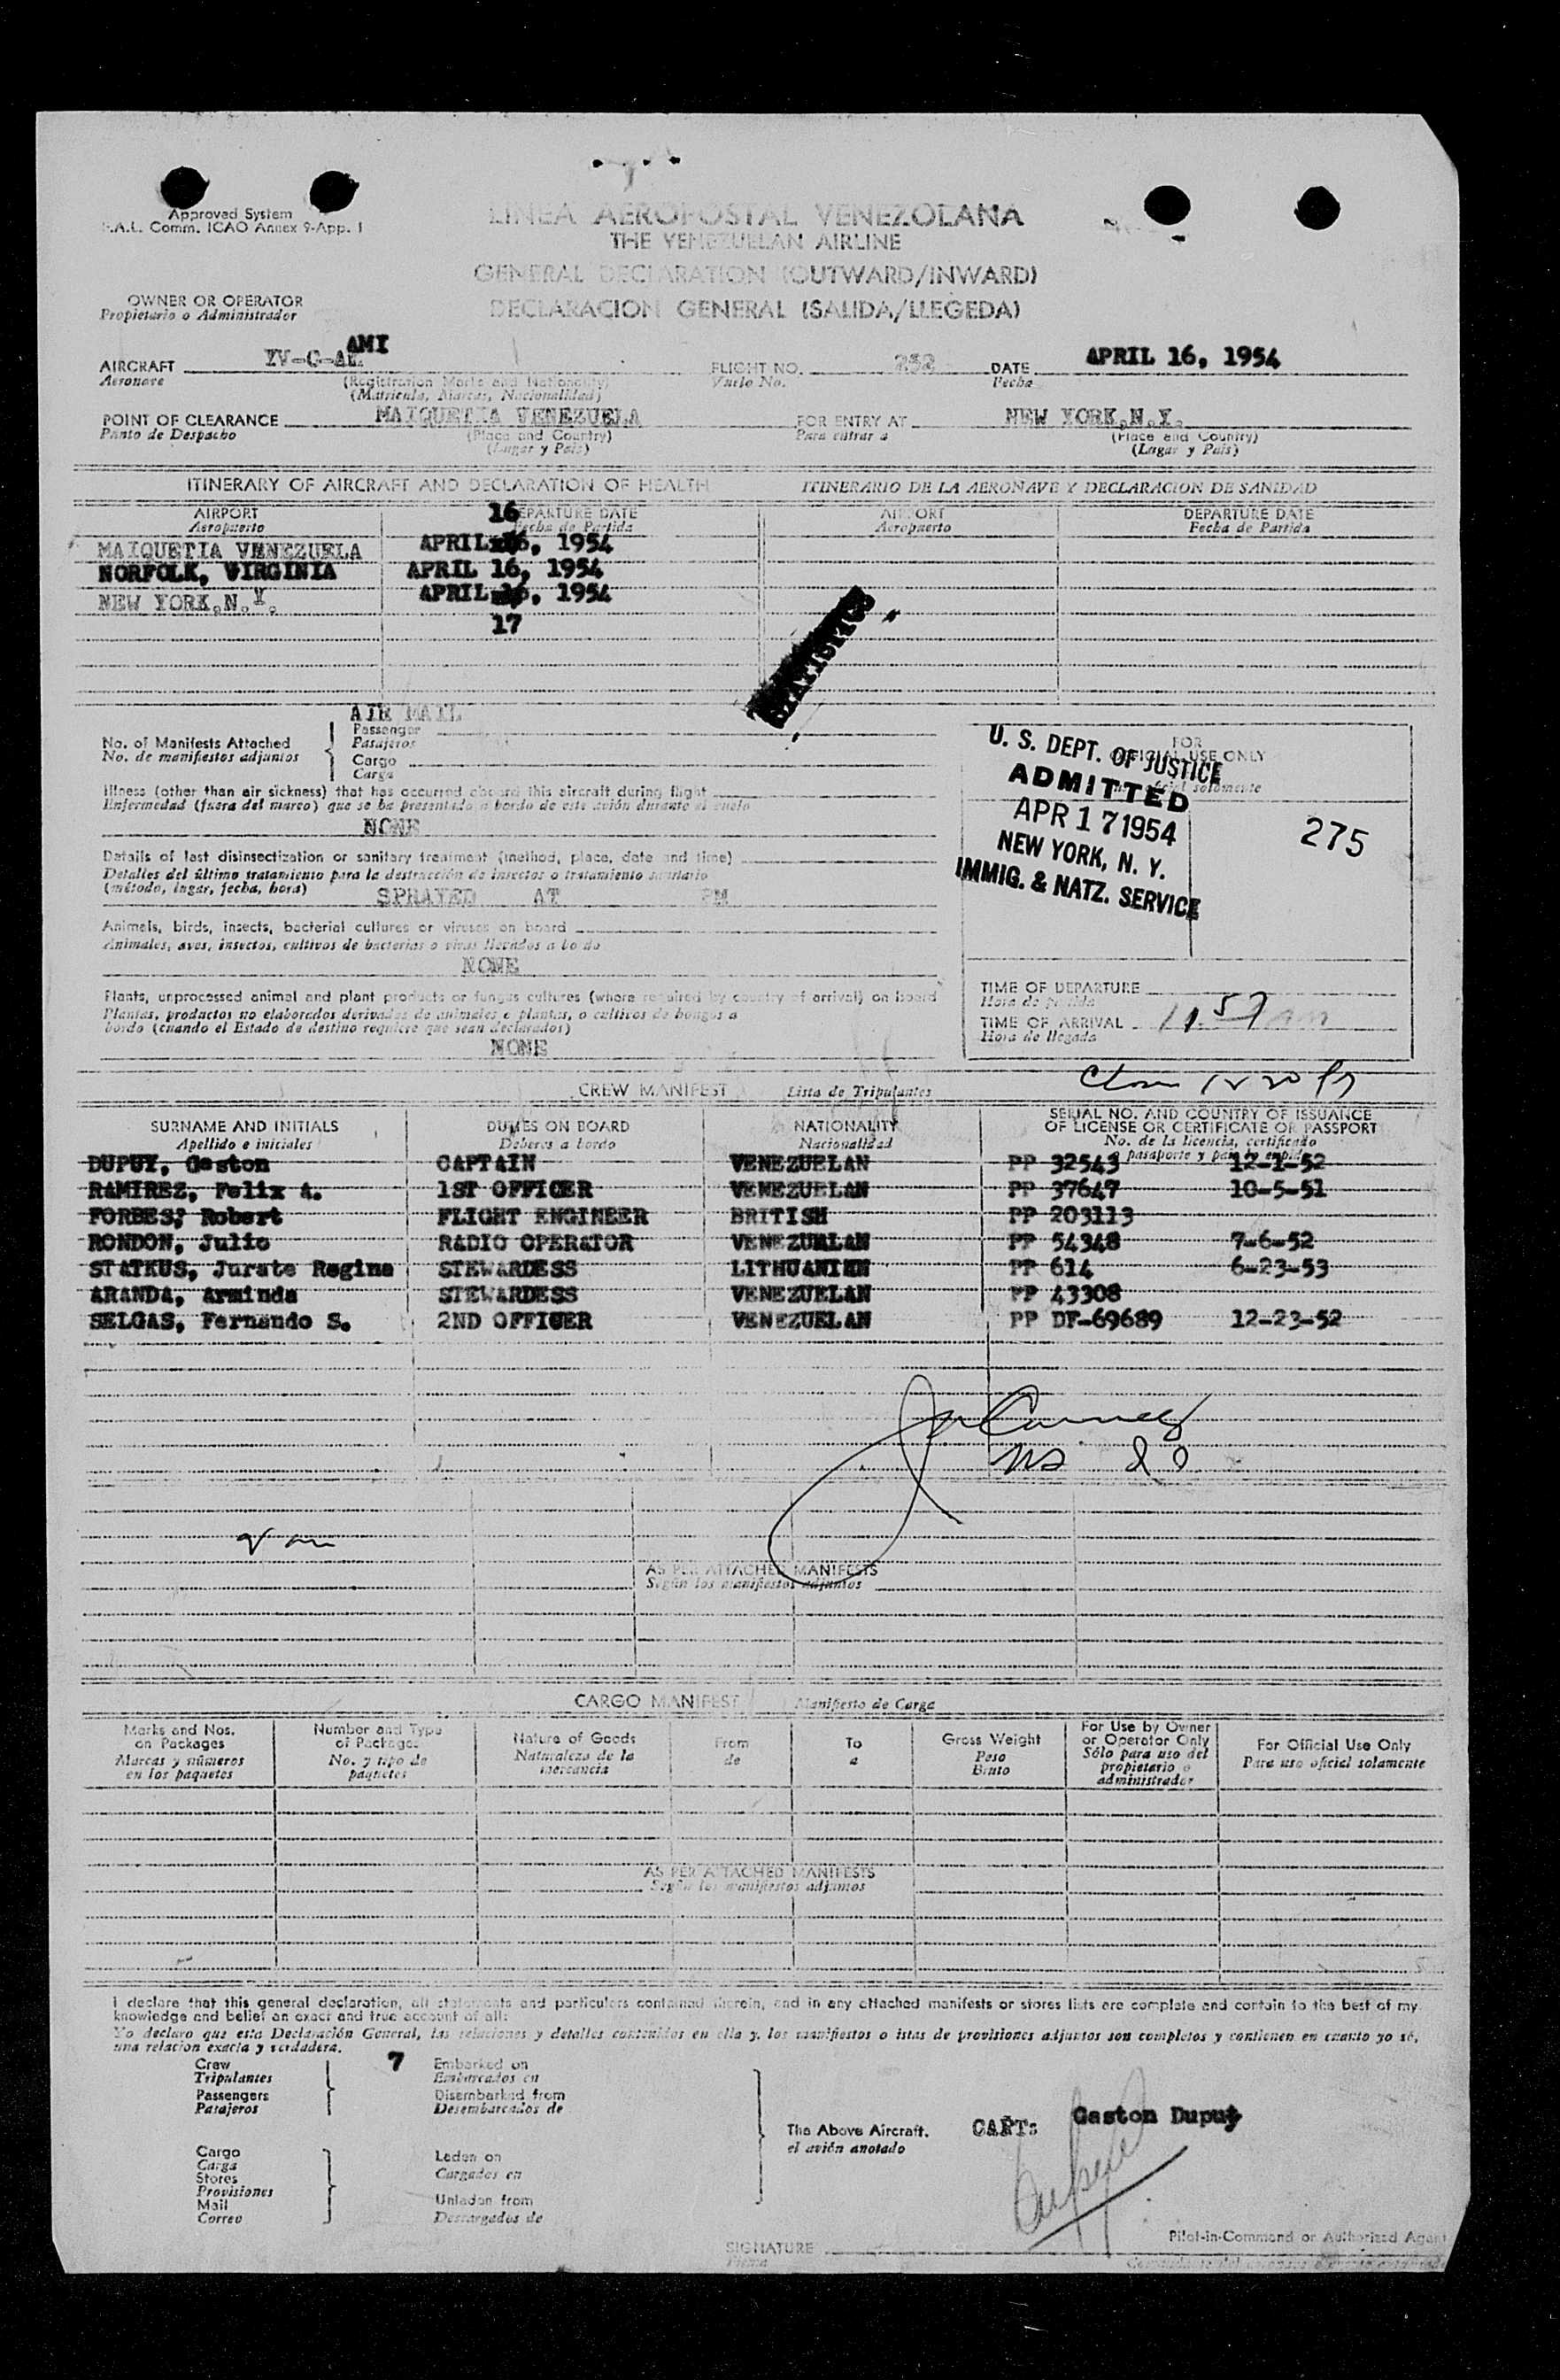 Approved System
F.A.L. Comm. ICAO Annex 9-App. 1
LINEA AEROPOSTAL VENEZOLANA
THE VENEZUELAN AIRLINE
GENERAL DECLARATION (OUTWARD/INWARD)
DECLARACION GENERAL (SALIDA/LLEGEDA)
OWNER OR OPERATOR
Propietario o Administrador
AMI
AIRCRAFT YV-C- FLIGHT NO. 252 DATE APRIL 16, 1954
Aeronave (Registration Marks and Nationality) Vuelo No. Fecha
(Matricula, Marcas, Nacionalidad)
POINT OF CLEARANCE MAIQUETIA VENEZUELA FOR ENTRY AT NEW YORK,N.Y.
Punto de Despacho (Place and Country) Para entrar a (Place and Country)
(Lugar y Pais) (Lugar y Pais)
ITINERARY OF AIRCRAFT AND DECLARATION OF HEALTH ITINERARIO DE LA AERONAVE Y DECLARACION DE SANIDAD
AIRPORT 16 DEPARTURE DATE AIRPORT DEPARTURE DATE
Aeropuerto Fecha de Partida Aeropuerto Fecha de Partida
MAIQUETIA VENEZUELA APRIL , 1954
NORFOLK, VIRGINIA APRIL 16, 1954
NEW YORK,N.Y. APRIL , 1954
17
STATISTICS
AIR MAIL
No. of Manifests Attached Passenger
No. de manifiestos adjuntos Pasajeros
Cargo
Carga
FOR
OFFICIAL USE ONLY
U. S. DEPT. OF JUSTICE
ADMITTED
APR 17 1954
NEW YORK, N. Y.
IMMIG. & NATZ. SERVICE
275
Illness (other than air sickness) that has occurred aboard this aircraft during flight
Enfermedad (fuera del mareo) que se ha presentado a bordo de este avión durante el vuelo
NONE
Details of last disinsectization or sanitary treatment (method, place, date and time)
Detalles del último tratamiento para la destrucción de insectos o tratamiento sanitario
(método, lugar, fecha, hora) SPRAYED AT PM
Animals, birds, insects, bacterial cultures or viruses on board
Animales, aves, insectos, cultivos de bacterias o virus llevados a bordo
NONE
Plants, unprocessed animal and plant products or fungus cultures (where required by country of arrival) on board
Plantas, productos no elaborados derivados de animales o plantas, o cultivos de hongos a
bordo (cuando el Estado de destino requiere que sean declarados)
NONE
TIME OF DEPARTURE
Hora de partida
TIME OF ARRIVAL 11.57 am
Hora de llegada
CREW MANIFEST Lista de Tripulantes
SURNAME AND INITIALS DUTIES ON BOARD NATIONALITY SERIAL NO. AND COUNTRY OF ISSUANCE
OF LICENSE OR CERTIFICATE OR PASSPORT
Apellido e iniciales Deberes a bordo Nacionalidad No. de la licencia, certificado
DUPUY, Gaston CAPTAIN VENEZUELAN PP 32543 12-1-52
RAMIREZ, Felix A. 1ST OFFICER VENEZUELAN PP 37647 10-5-51
FORBES, Robert FLIGHT ENGINEER BRITISH PP 203113
RONDON, Julio RADIO OPERATOR VENEZUELAN PP 54348 7-6-52
STATKUS, Jurate Regina STEWARDESS LITHUANIEN PP 614 6-23-53
ARANDA, Arminda STEWARDESS VENEZUELAN PP 43308
SELGAS, Fernando S. 2ND OFFICER VENEZUELAN PP DF-69689 12-23-52
AS PER ATTACHED MANIFESTS
Según los manifiestos adjuntos
CARGO MANIFEST Manifiesto de Carga
Marks and Nos. on Packages Number and Type of Packages Nature of Goods From To Gross Weight For Use by Owner or Operator Only For Official Use Only
Marcas y números en los paquetes No. y tipo de paquetes Naturaleza de la mercancia de a Peso Bruto Sólo para uso del propietario o administrador Para uso oficial solamente
AS PER ATTACHED MANIFESTS
Según los manifiestos adjuntos
I declare that this general declaration, all statements and particulars contained therein, and in any attached manifests or stores lists are complete and contain to the best of my
knowledge and belief an exact and true account of all:
Yo declaro que esta Declaración General, las relaciones y detalles contenidos en ella y, los manifiestos o istas de provisiones adjuntos son completos y contienen en cuanto yo sé,
una relacion exacta y verdadera.
Crew 7 Embarked on
Tripulantes Embarcados en
Passengers Disembarked from
Pasajeros Desembarcados de
The Above Aircraft. CAPT: Gaston Dupuy
el avión anotado
Cargo Laden on
Carga Cargados en
Stores
Provisiones
Mail Unladen from
Correo Descargados de
Pilot-in-Command or Authorized Agent
SIGNATURE
Firma